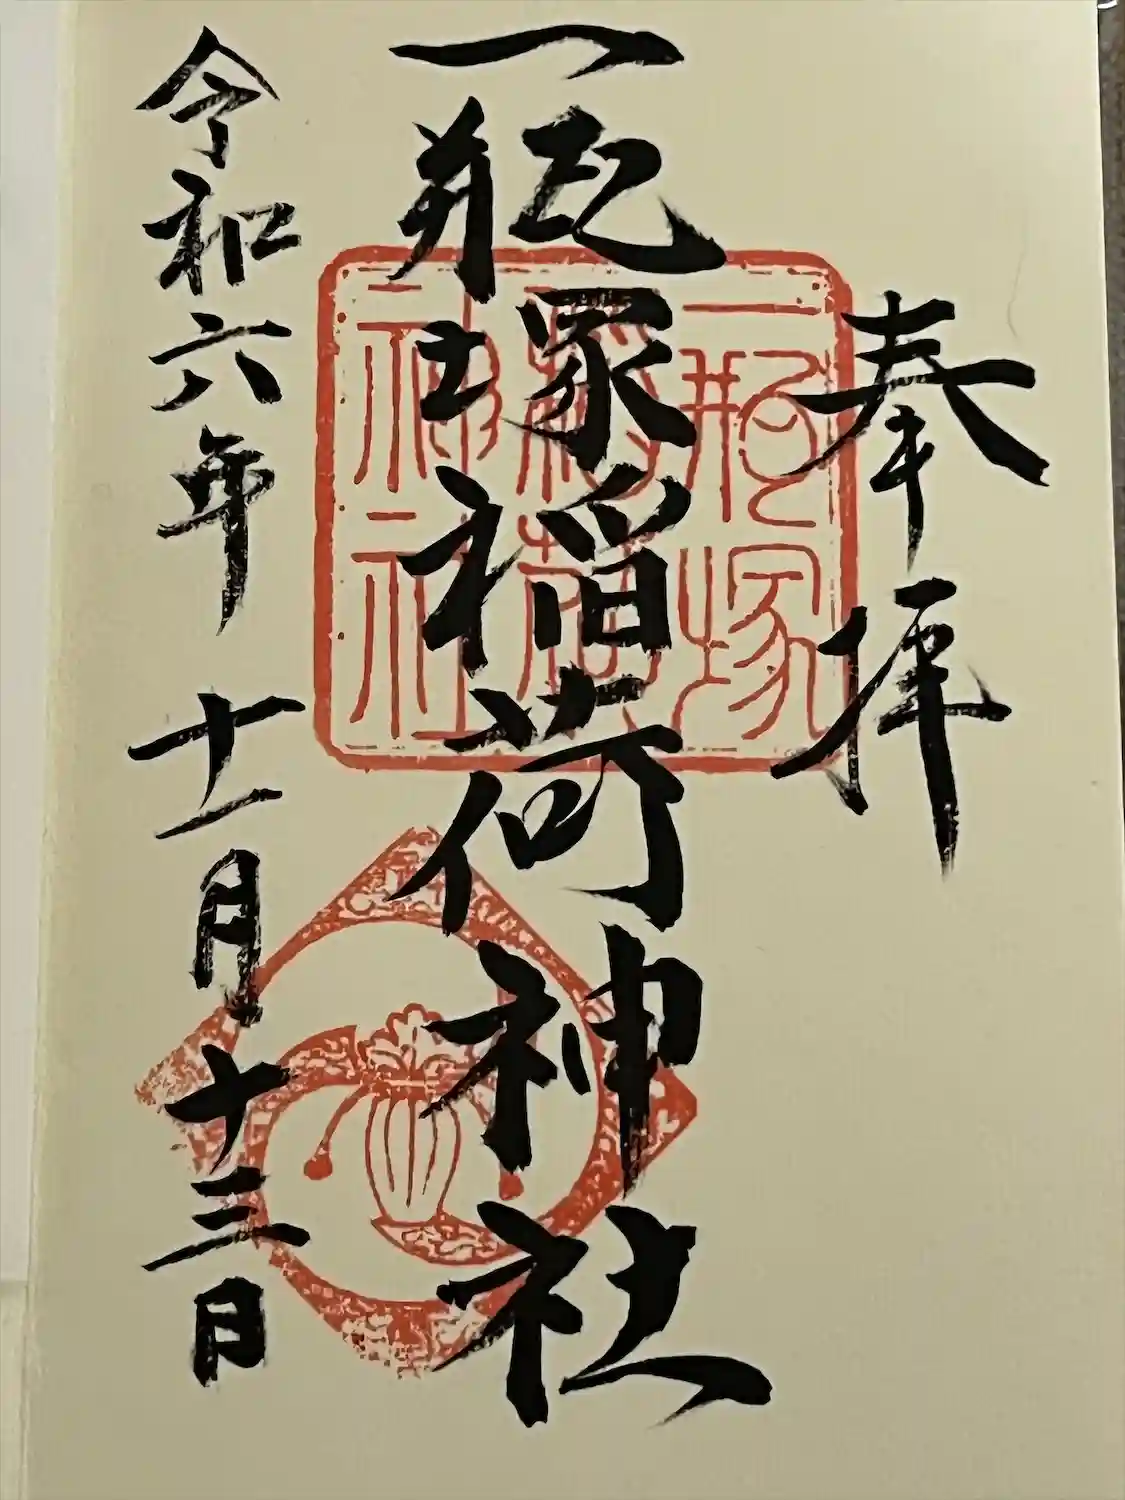 奉拝
一瓶塚稲荷神社
令和六年十一月十三日
一瓶塚
稲荷
神社